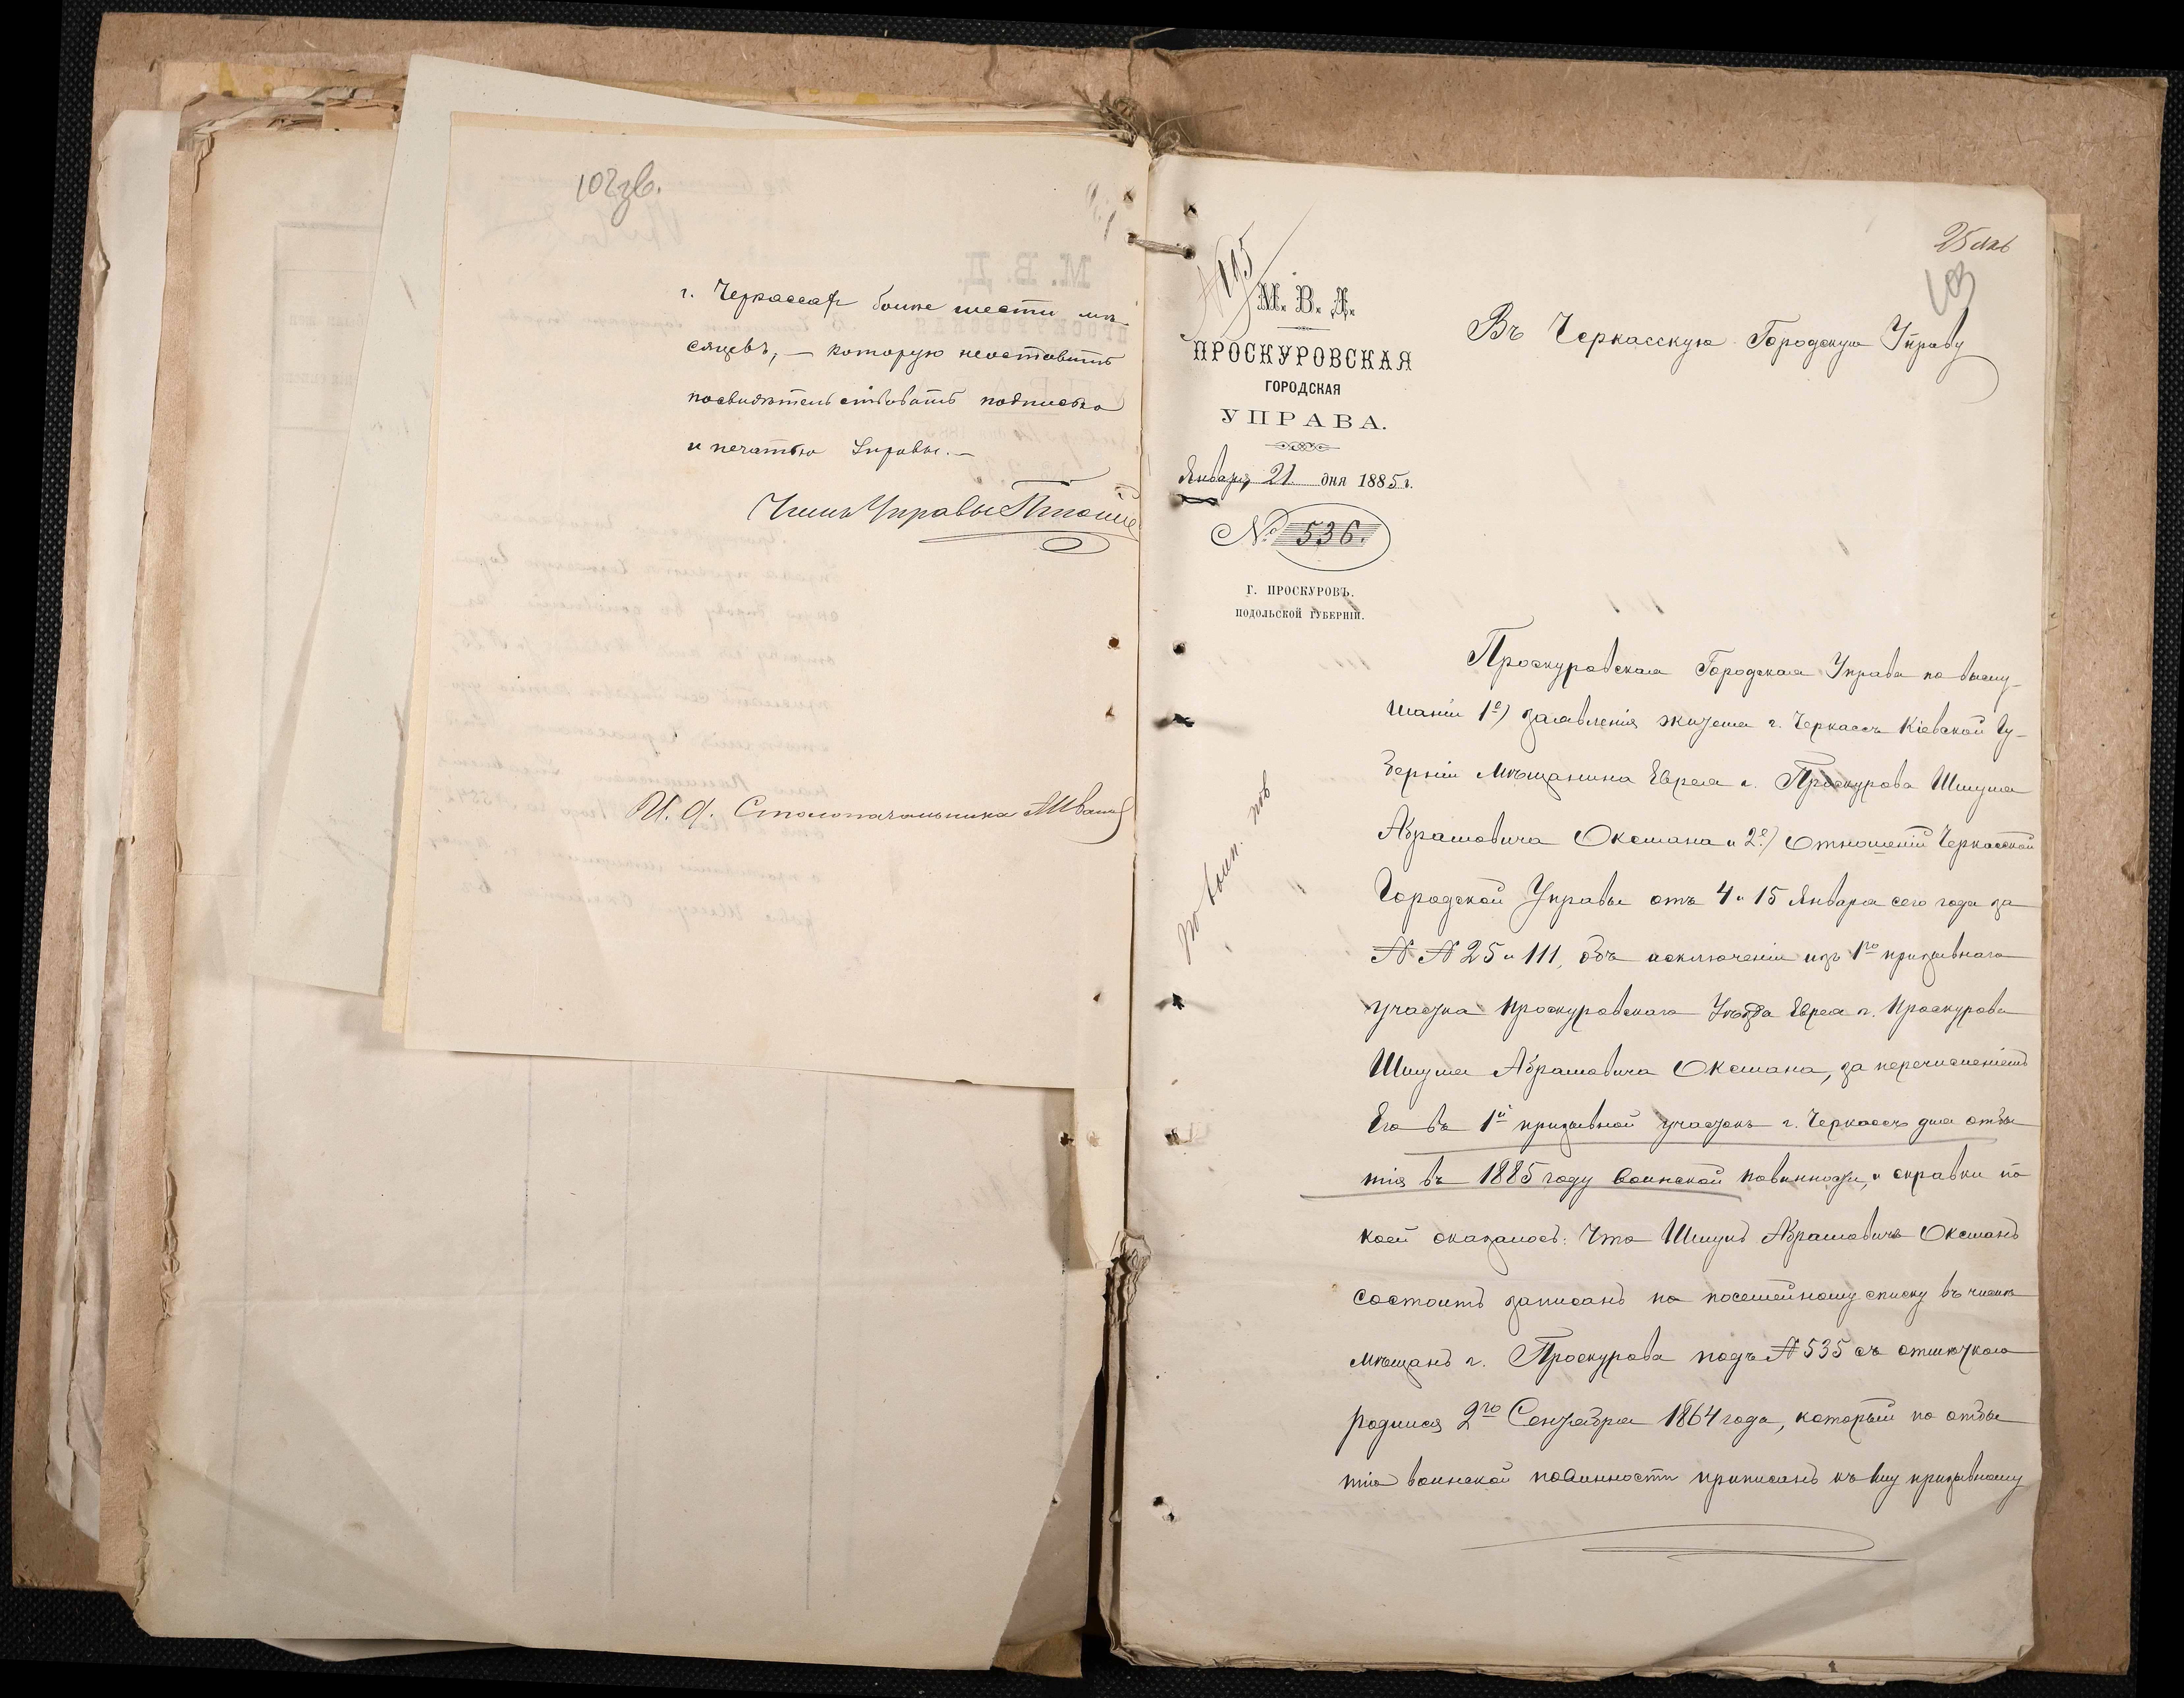 102зв.
г. Черкассахъ более шести мѣ-
сяцевъ, — которую неоставить
посвидѣтельствовать подписью
и печатью Управы. —
Членъ Управы
И. д. Столоначальника
25 янв
103
№ 195
М. В. Д.
ПРОСКУРОВСКАЯ
ГОРОДСКАЯ
УПРАВА.
Января 21 дня 1885 г.
№ 536.
Г. ПРОСКУРОВЪ.
ПОДОЛЬСКОЙ ГУБЕРНІИ.
Въ Черкасскую Городскую Управу
по воин. пов
Проскуровская Городская Управа по выслу-
шаніи 1е) заявленія жителя г. Черкассъ Кіевской Гу-
берніи Мѣщанина Еврея г. Проскурова Шмуля
Абрамовича Оксмана и 2е) Отношеній Черкасской
Городской Управы отъ 4 и 15 Января сего года за
№ № 25 и 111, объ исключеніи изъ 1го призывнаго
участка Проскуровскаго Уѣзда Еврея г. Проскурова
Шмуля Абрамовича Оксмана, за перечисленіемъ
Его въ 1й призывной участокъ г. Черкассъ для отбы
тія въ 1885 году воинской повинности, и справки по
коей оказалось: Что Шмуль Абрамовичъ Оксманъ
состоитъ записанъ по посемейному списку въ числѣ
мѣщанъ г. Проскурова подъ № 535 съ отмѣткою
родился 2го Сентября 1864 года, который по отбы
тію воинской повинности приписанъ къ 1му призывному